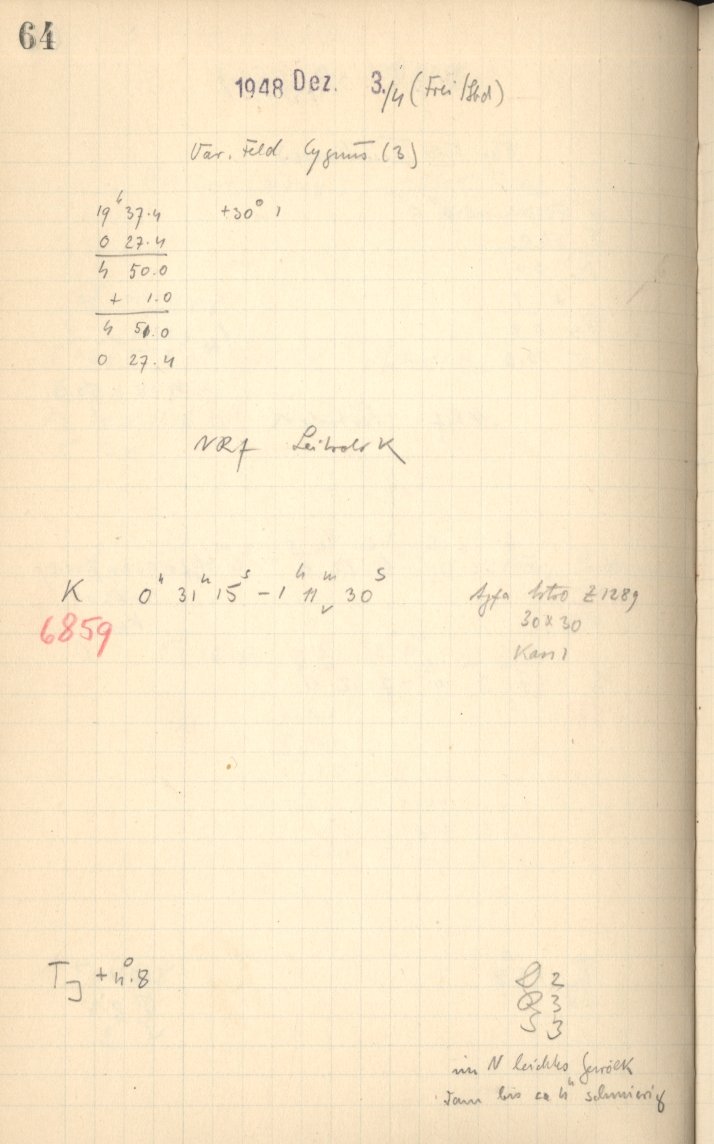 64
1948 Dez. 3./4 (Frei/Sbd)
Var. Feld Cygnus (3)
19ʰ 37.4 +30° 1
0 27.4
4 50.0
+ 1.0
4 51.0
0 27.4
K
K 0ʰ 31ᵐ 15ˢ – 1ʰ 11ᵐ 30ˢ Agfa Astro Z1289
6859 30x30
Kass 1
TJ +4°.8
D 2
R 3
S 3
im N leichtes Gewölk
Dann bis ca 4ʰ schmierig